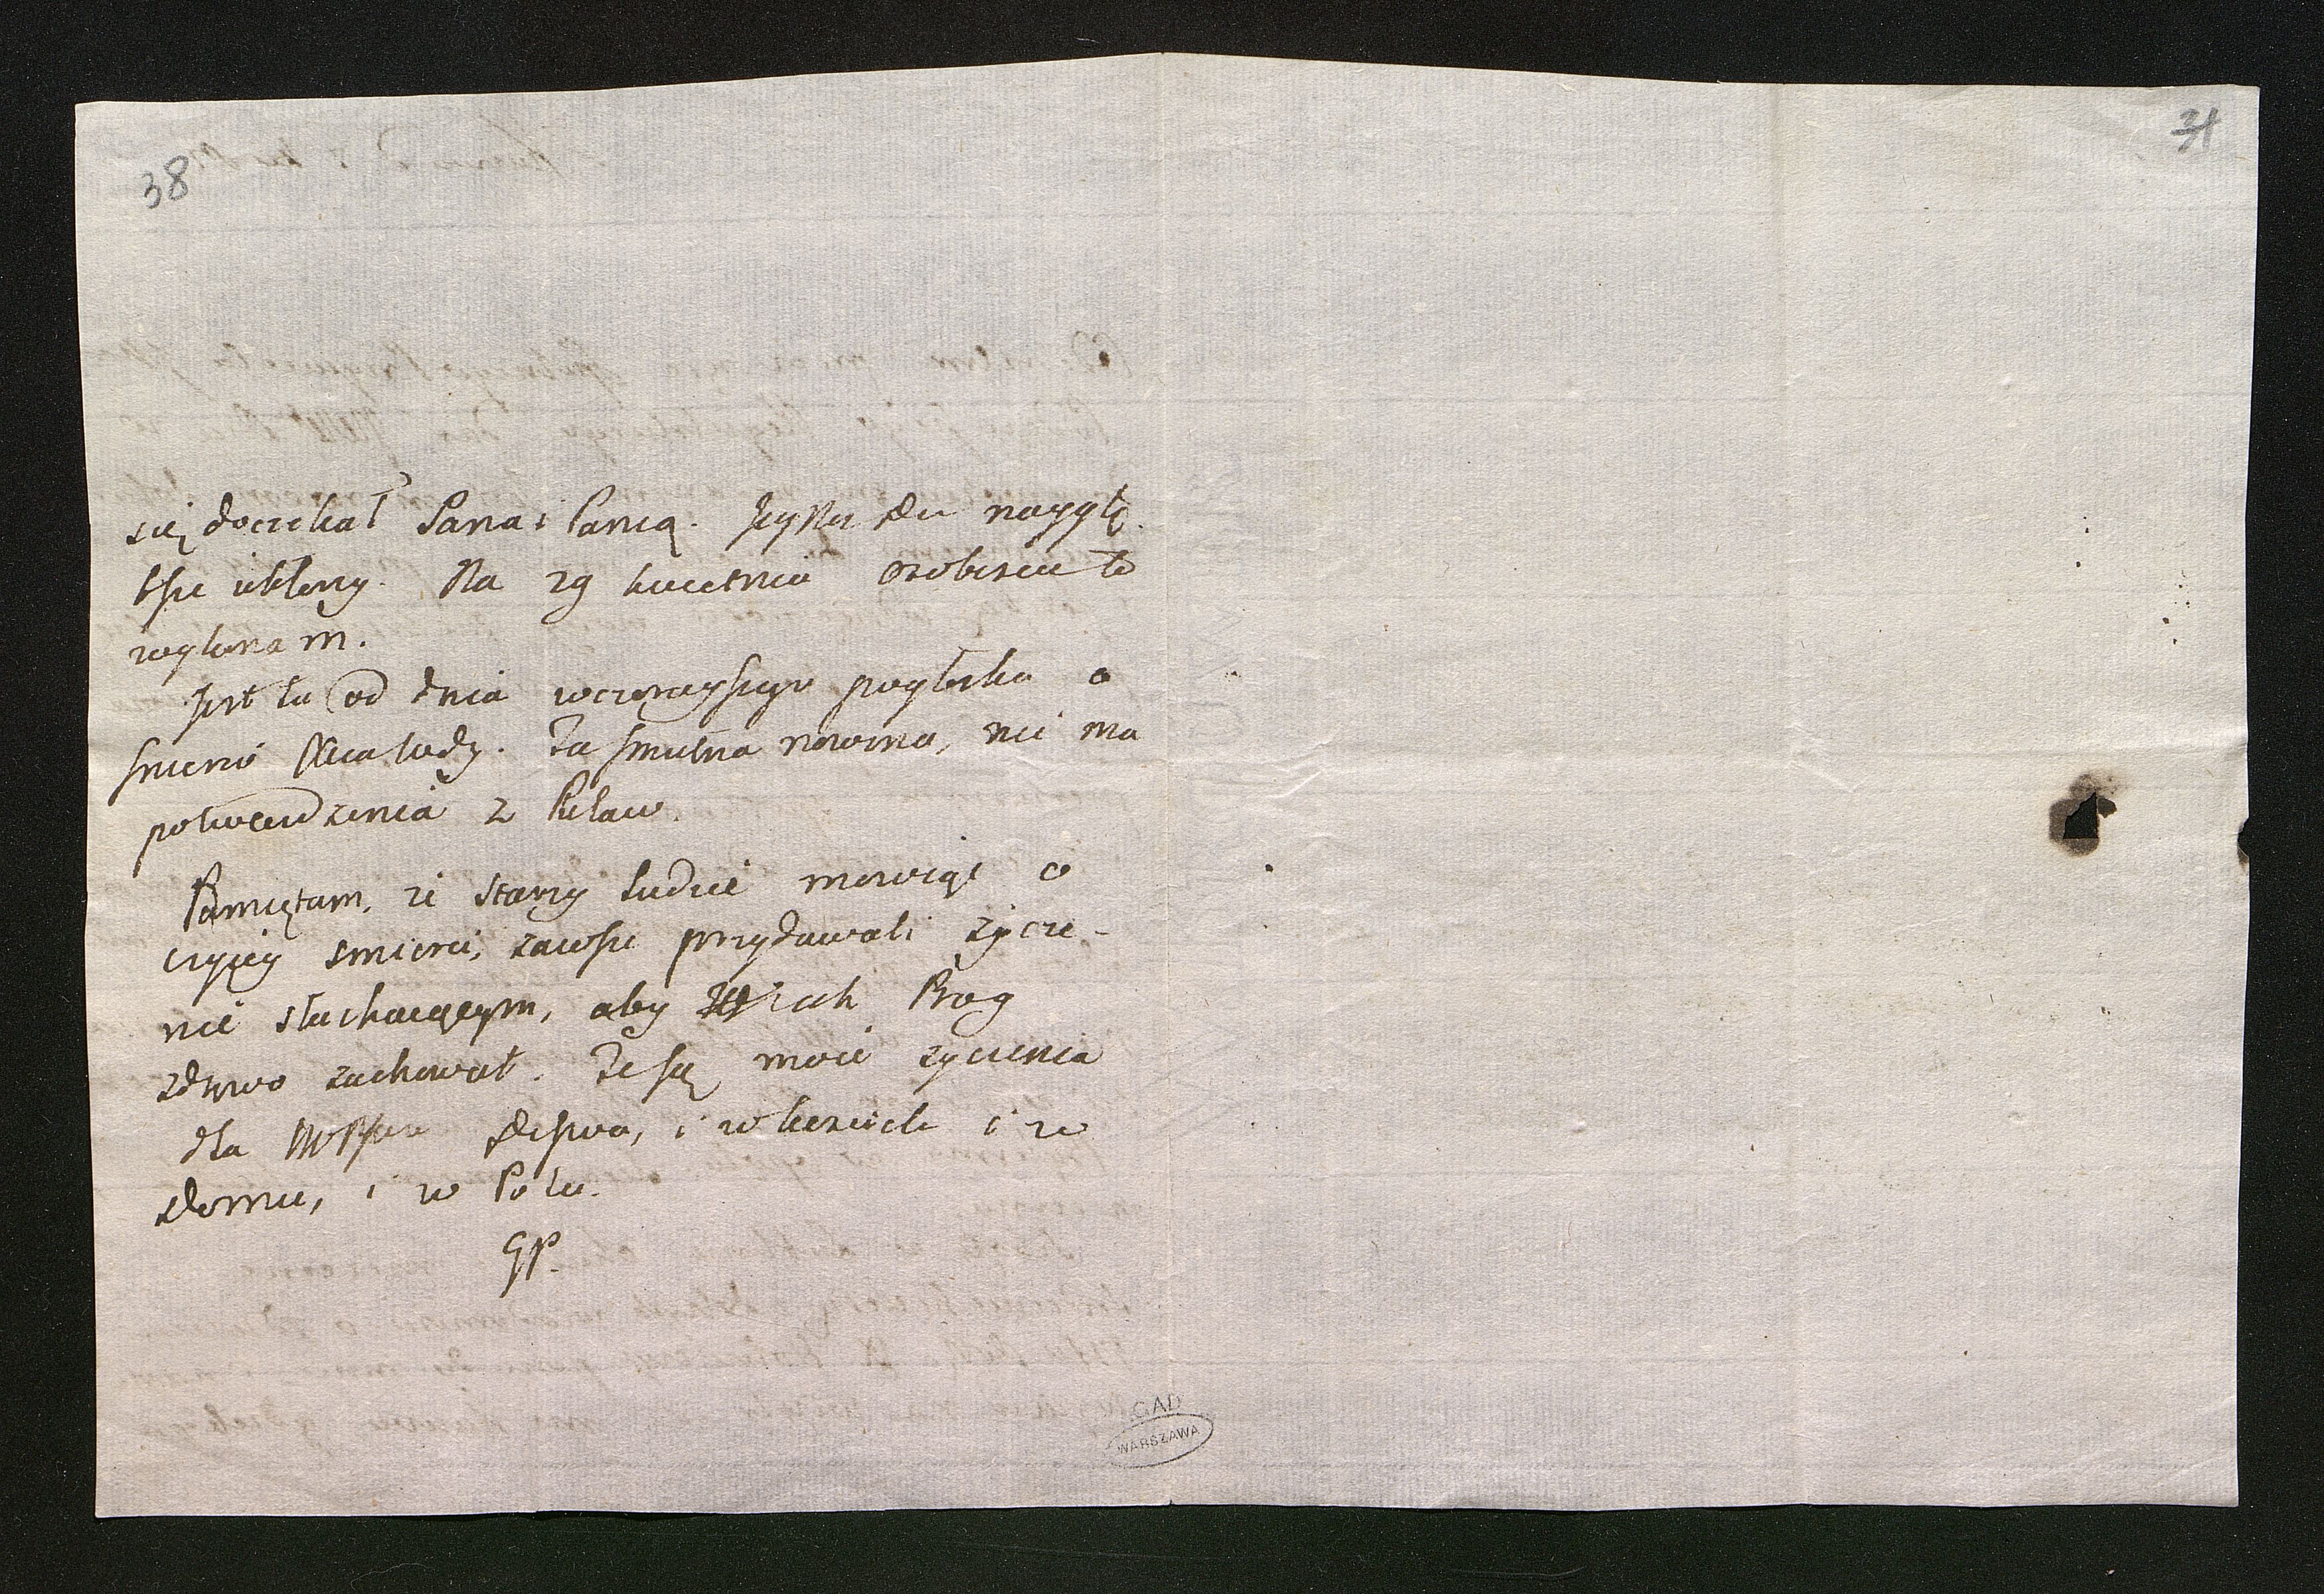 38
31
się doczekał Pana i Panią.
bsze ukłony. Na 29 kwietnia osobiscie to
wykonam.
Jest tu od dnia wczorayszego pogłoska o
smierci. Ta smutna nowina, nie ma
potwierdzenia z Puław.
Pamiętam, że starzy ludzie mowiąc o
czyiey smierci, zawsze przydawali życze-
nie słuchaiącym, aby ich Bog
zdrowo zachował. Te są moie życzenia
dla Dobr., i w kosciele i w
Domu, i w Polu.
GP.
AGAD
WARSZAWA